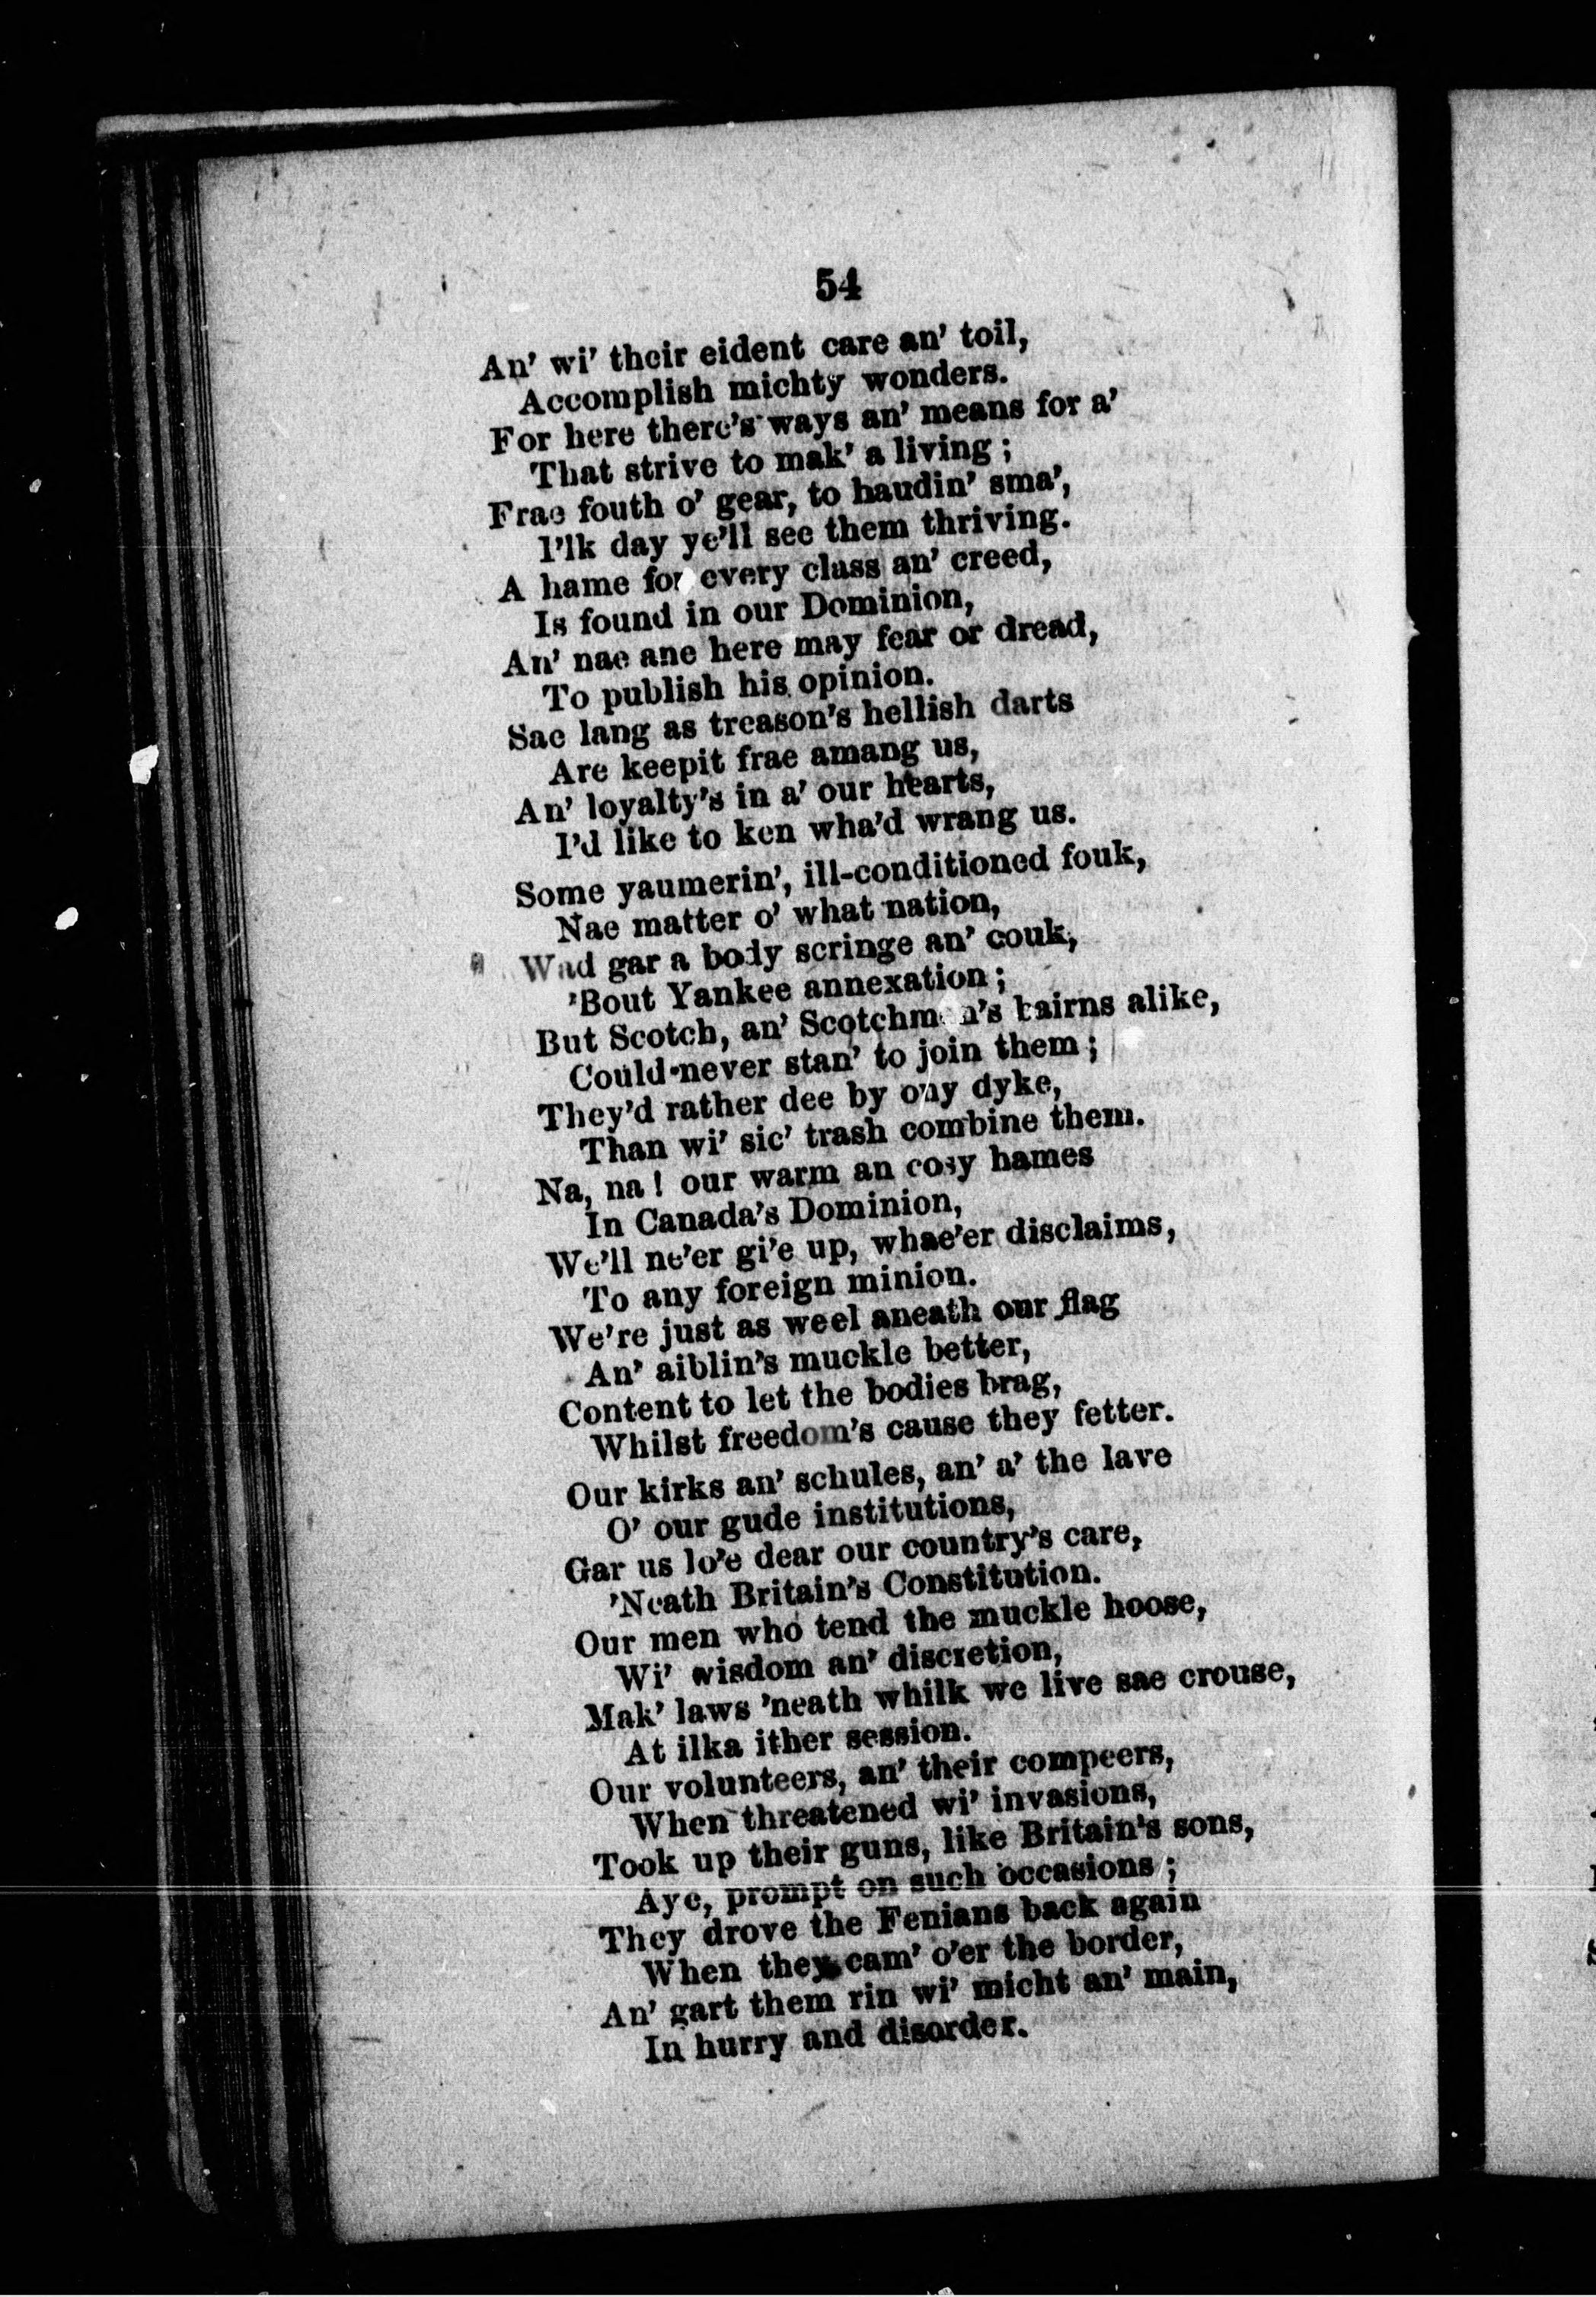 54
An' wi' their eident care an' toil,
Accomplish michty wonders.
For here there's ways an' means for a'
That strive to mak' a living;
Frae fouth o' gear, to haudin' sma',
I'lk day ye'll see them thriving.
A hame for every class an' creed,
Is found in our Dominion,
An' nae ane here may fear or dread,
To publish his opinion.
Sae lang as treason's hellish darts
Are keepit frae amang us,
An' loyalty's in a' our hearts,
I'd like to ken wha'd wrang us.
Some yaumerin', ill-conditioned fouk,
Nae matter o' what nation,
Wad gar a body scringe an' couk,
'Bout Yankee annexation;
But Scotch, an' Scotchmen's bairns alike,
Could never stan' to join them;
They'd rather dee by ony dyke,
Than wi' sic' trash combine them.
Na, na! our warm an cosy hames
In Canada's Dominion,
We'll ne'er gi'e up, whae'er disclaims,
To any foreign minion.
We're just as weel aneath our flag
An' aiblin's muckle better,
Content to let the bodies brag,
Whilst freedom's cause they fetter.
Our kirks an' schules, an' a' the lave
O' our gude institutions,
Gar us lo'e dear our country's care,
'Neath Britain's Constitution.
Our men who tend the muckle hoose,
Wi' wisdom an' discretion,
Mak' laws 'neath whilk we live sae crouse,
At ilka ither session.
Our volunteers, an' their compeers,
When threatened wi' invasions,
Took up their guns, like Britain's sons,
Aye, prompt on such occasions;
They drove the Fenians back again
When they cam' o'er the border,
An' gart them rin wi' micht an' main,
In hurry and disorder.